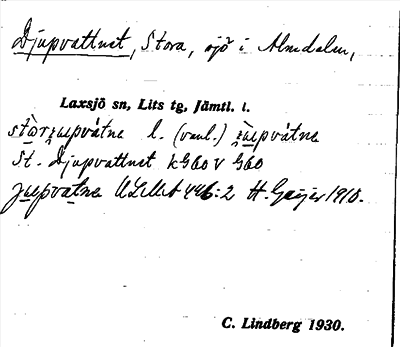 Djupvattnet, Stora, sjö i Almdalen,
Laxsjö sn, Lits tg, Jämtl. l.
stòrʒupvátne l. (vanl.) ʒùpvátne
St. Djupvattnet kG60v G60
jupvatne ULMA 446:2 H. Geijer 1910.
C. Lindberg 1930.